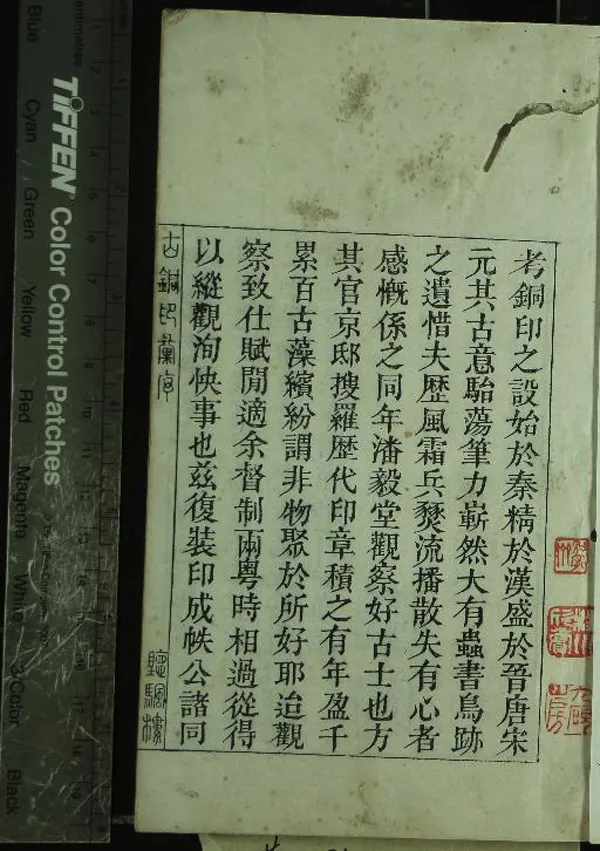 考銅印之設始於秦精於漢盛於晉唐宋
元其古意駘蕩筆力嶄然大有蟲書鳥跡
之遺惜夫歷風霜兵燹流播散失有心者
感慨係之同年潘毅堂觀察好古士也方
其官京邸搜羅歷代印章積之有年盈千
累百古藻繽紛謂非物聚於所好耶迨觀
察致仕賦閒適余督制兩粵時相過從得
以縱觀洵快事也茲復裝印成帙公諸同
古銅印彙序
聽颿樓
TIFFEN Color Control Patches
centimetres
Blue Cyan Green Yellow Red Magenta White 3/Color Black